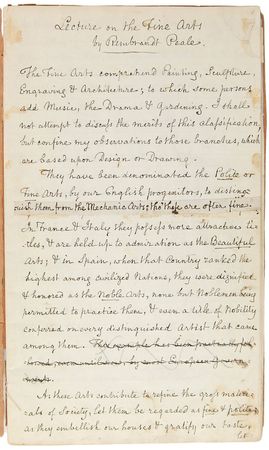 Lecture on the Fine Arts
by Rembrandt Peale.
The Fine Arts comprehend Painting, Sculpture,
Engraving & Architecture; to which some persons
add Music, the Drama & Gardening. I shall
not attempt to discuss the merits of this classification,
but confine my observations to those branches, which
are based upon Design or Drawing.
They have been denominated the Polite or
Fine Arts, by our English progenitors, to disting
uish them from the Mechanic Arts; tho' these are often fine.
In France & Italy they possess more attractive ti-
tles, & are held up to admiration as the Beautiful
Arts; & in Spain, when that Country ranked the
highest among civilized Nations, they were dignified
& honored as the Noble Arts, none but Noblemen being
permitted to practice them, & even a title of Nobility
conferred on every distinguished Artist that came
among them. This example has been
by most European Govern
ments.
As these Arts contribute to refine the gross mate-
rials of Society, let them be regarded as fine & polite;
as they embellish our houses & gratify our taste,
let